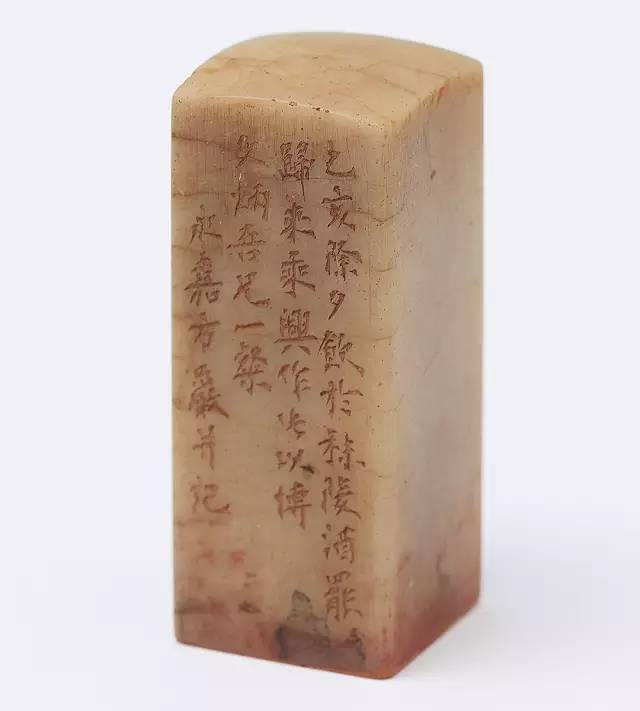 乙亥除夕飲於秣陵酒罷
歸來乘興作此以博
文炳吾兄一粲
永嘉方巖并記